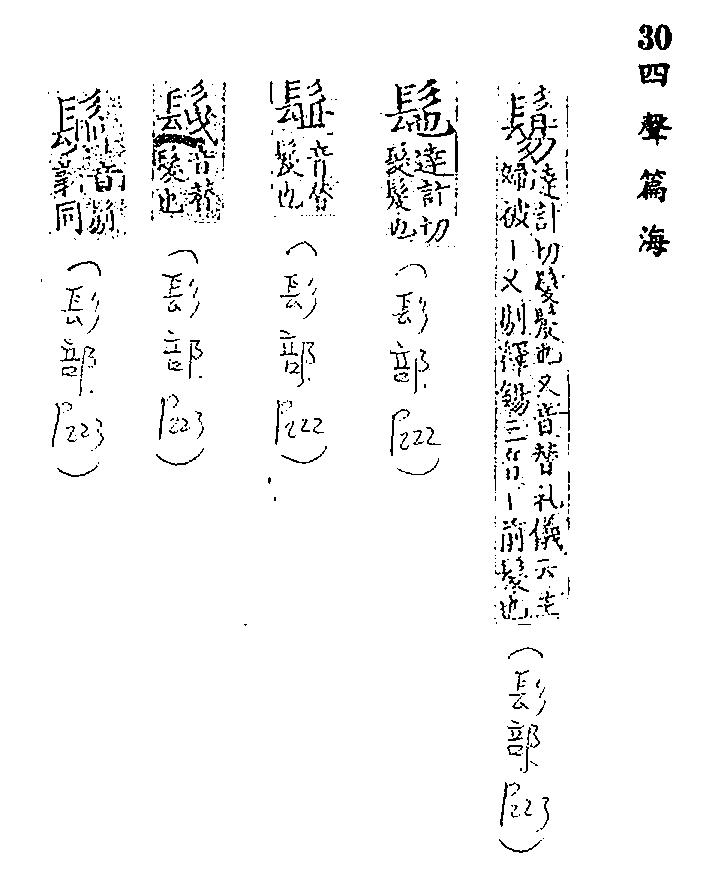 30 四聲篇海
鬄 達計切髲髮也又音替礼儀云主
婦破丨又剔鐸錫三音丨前髮也
(髟部. P.223)
髢 達計切
髲髮也
(髟部. P.222)
音替
髮也
(髟部. P.222)
音替
髮也
(髟部. P.223)
音剃
義同
(髟部. P.223)